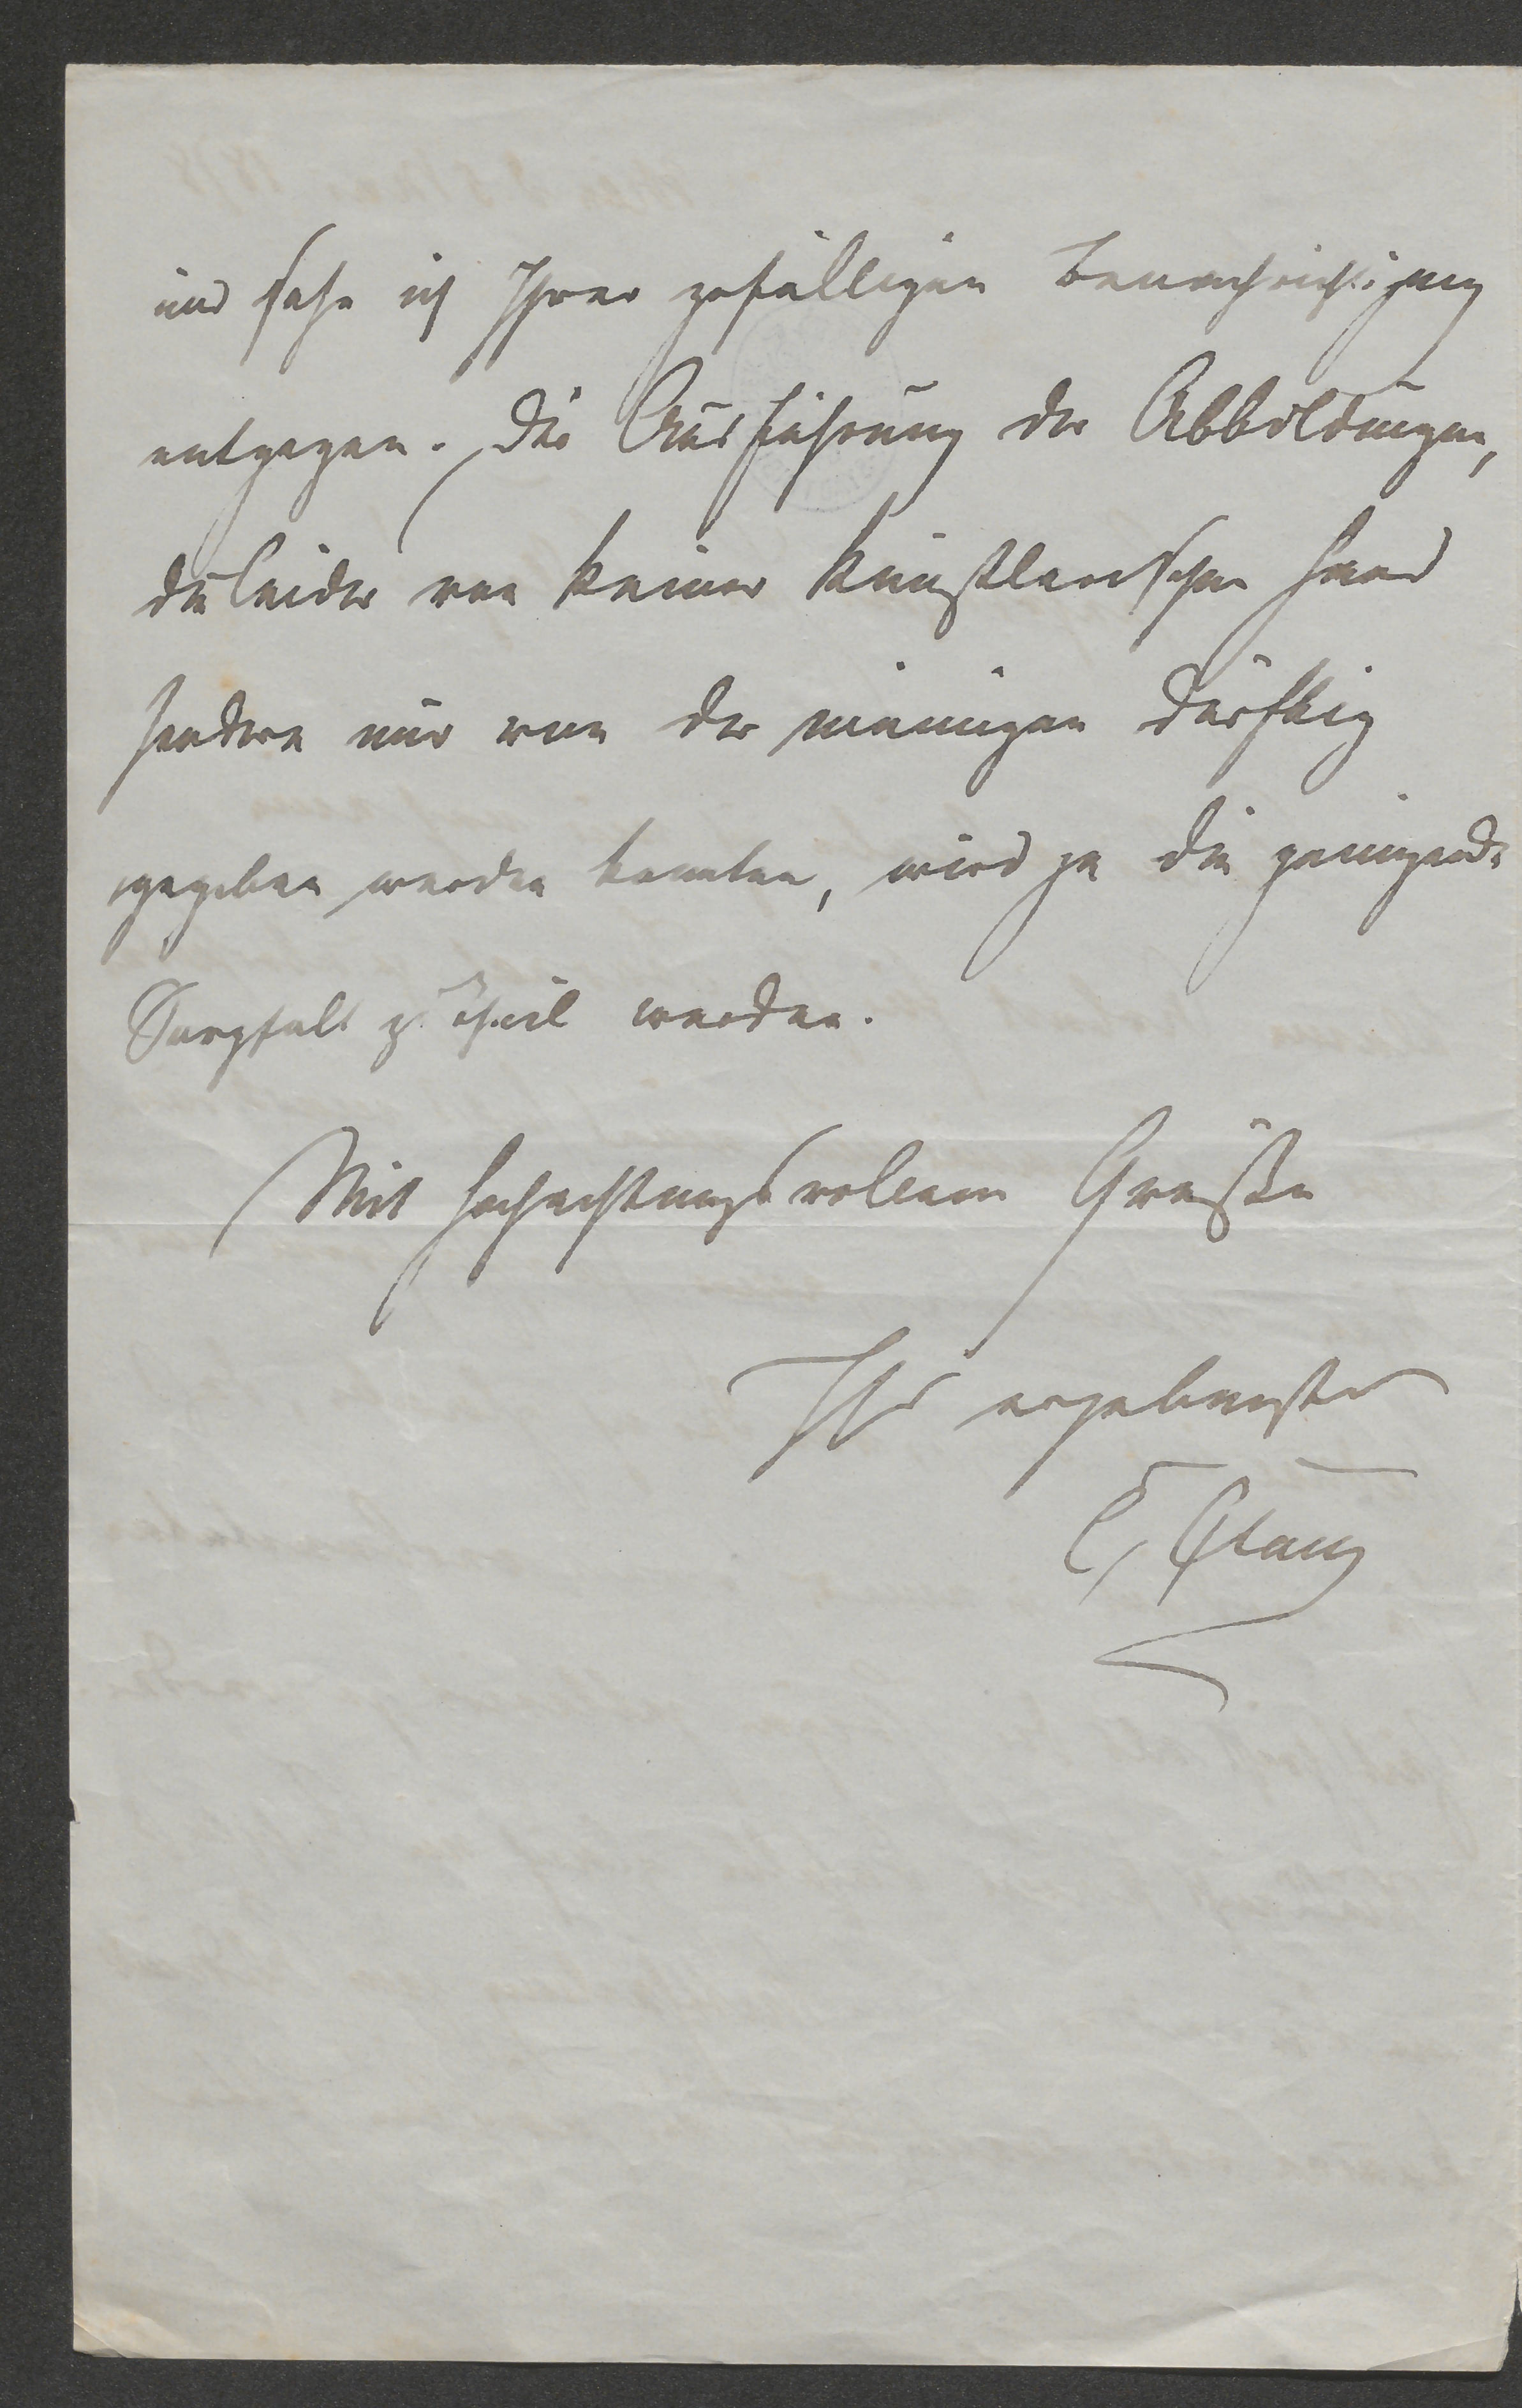 und sehe ich Ihrer gefälligen Benachrichtigung
entgegen. Die Ausführung der Abbildungen,
die leider von keiner künstlerischen Hand
sondern nur von der meinigen dürftig
gegeben werden konnten, wird ja die genügende
Sorgfalt zu theil werden.
Mit hochachtungsvollem Grusse
Ihr ergebenster
C. Claus